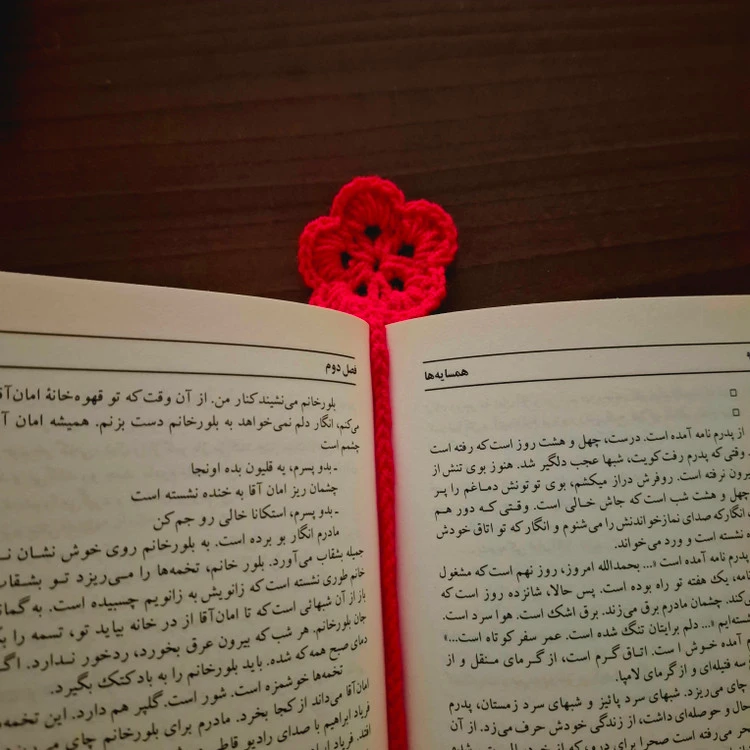 همسایه‌ها
از پدرم نامه آمده است. درست، چهل و هشت روز است که رفته است
وقتی که پدرم رفت کویت، شبها عجب دلگیر شد. هنوز بوی تنش از
بیرون نرفته است. روفرش دراز میکشم، بوی توتونش دماغم را پر
چهل و هشت شب است که جاش خالی است. وقتی کـه دور هم
انگار که صدای نمازخواندنش را می‌شنوم و انگار که تو اتاق خودش
نشسته است و ورد می‌خواند.
پدرم نامه آمده است «... بحمدالله امروز، روز نهم است که مشغول
نامه، یک هفته تو راه بوده است. پس حالا، شانزده روز است که
می‌کند. چشمان مادرم برق می‌زند. برق اشک است. هوا سرد است.
«... دلم برایتان تنگ شده است. عمر سفر کوتاه است...»
آمده خوش است. اتاق گرم است، از گرمای منقل و از
سه فتیله‌ای و از گرمای لامپا.
چای می‌ریزد. شبهای سرد پائیز و شبهای سرد زمستان، پدرم
حال و حوصله‌ای داشت، از زندگی خودش حرف می‌زد. از آن
فصل دوم
بلورخانم می‌نشیند کنار من. از آن وقت که تو قهوه‌خانهٔ امان‌آقا
می‌کنم، انگار دلم نمی‌خواهد به بلورخانم دست بزنم. همیشه امان
چشمم است
ـ بدو پسرم، یه قلیون بده اونجا
چشمان ریز امان آقا به خنده نشسته است
ـ بدو پسرم، استکانا خالی رو جم کن
مادرم انگار بو برده است. به بلورخانم روی خوش نشـان
جمیله بشقاب می‌آورد. بلور خانم، تخمه‌ها را مـی‌ریزد تـو بشـقاب
خانم طوری نشسته است که زانویش به زانویم چسبیده است. به گمانم
باز از آن شبهائی است که تا امان‌آقا از در خانه بیاید تو، تسمه را
جان بلورخانم. هر شب که بیرون عرق بخورد، ردخور نـدارد.
دمای صبح همه که شده، باید بلورخانم را به بادکتک بگیرد.
تخمه‌ها خوشمزه است. شور است. گلپر هم دارد. این
امان‌آقا می‌داند از کجا بخرد. مادرم برای بلورخانم چای
فریاد ابراهیم با صدای رادیو